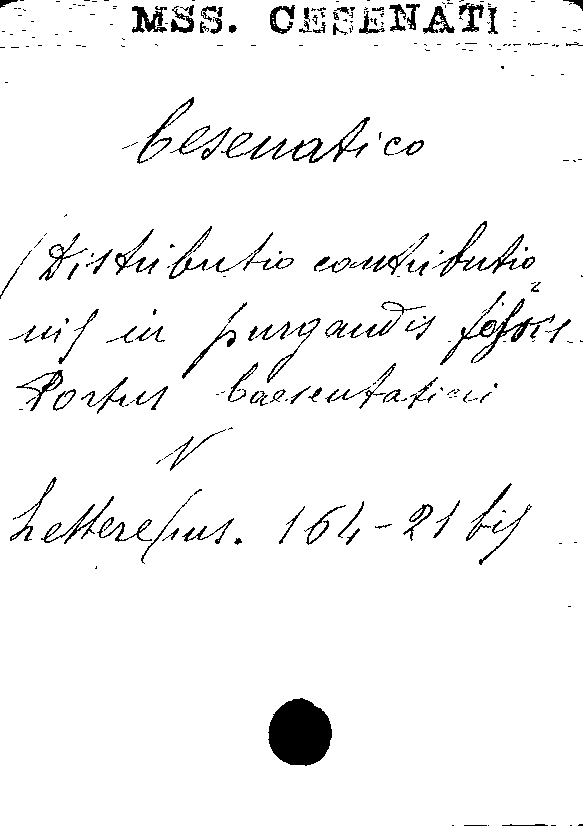 MSS. CESENATI
Cesenatico
(Distributio contributio
nis in purgandis fossis
Portus Caesentatici
V
Lettere/ms. 164-21 bis